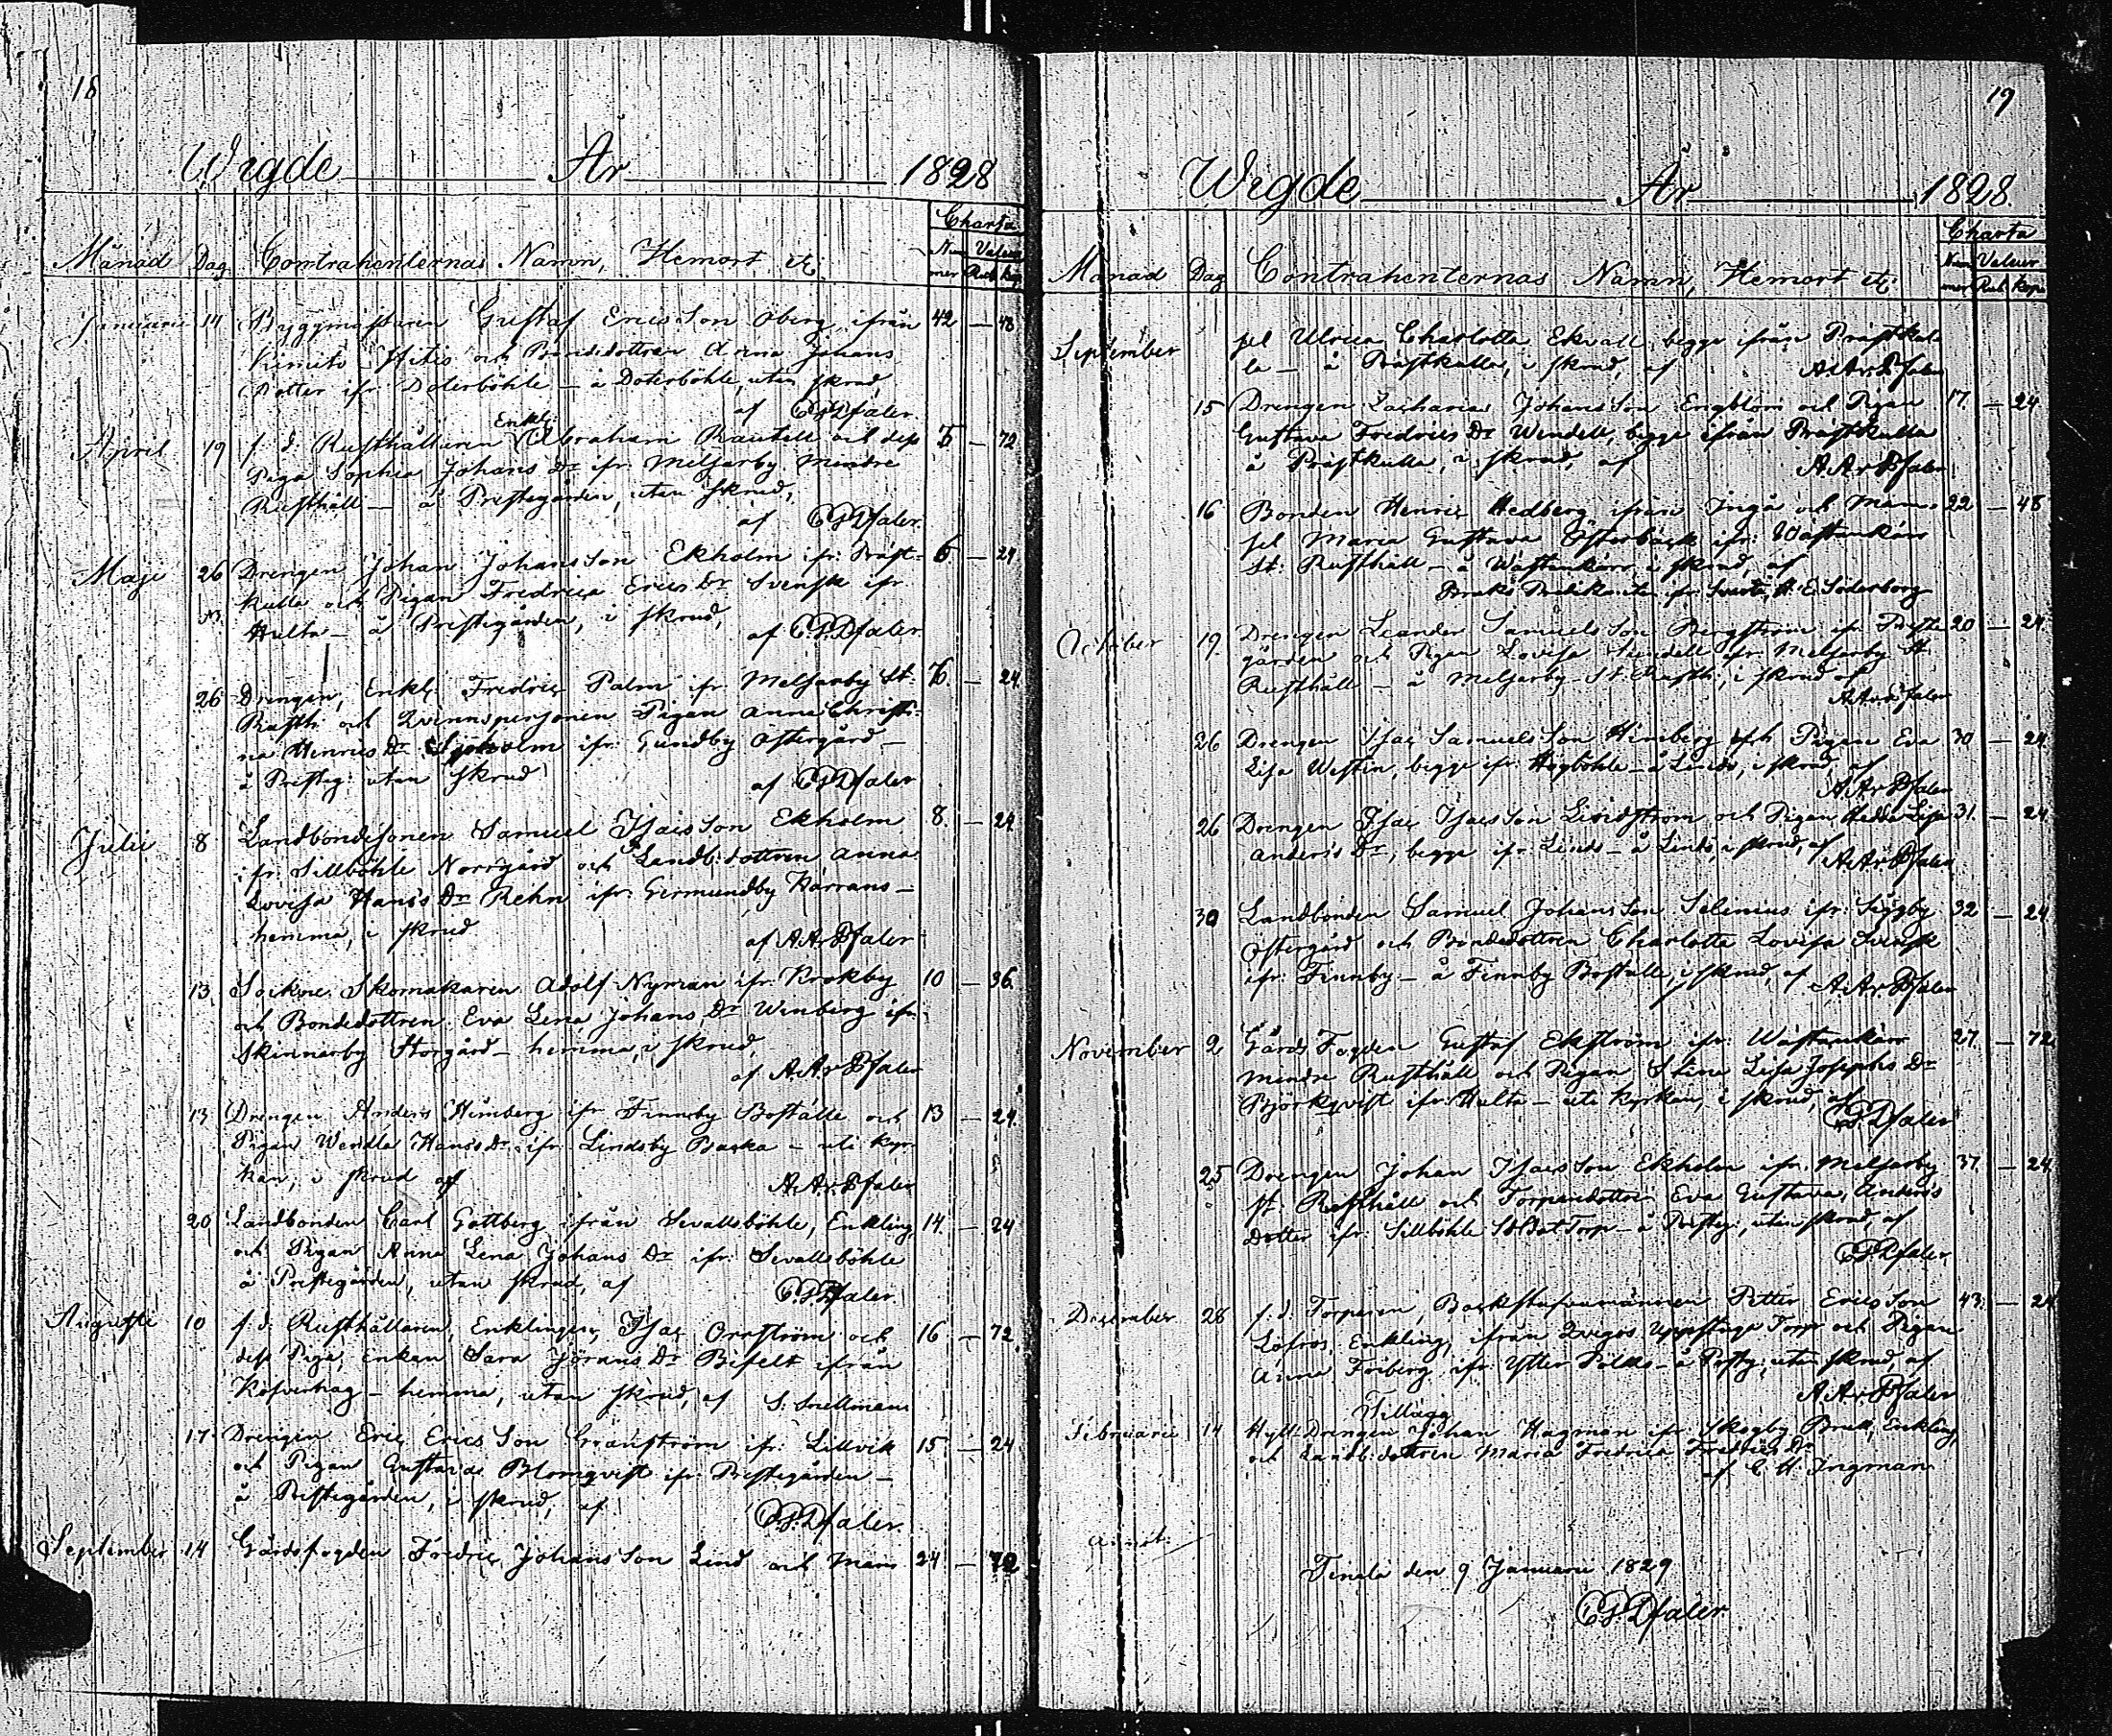 18
Wigde År 1828
Charta
Månad Dag Contrahenternas Namn, Hemort etc: Num Valeur
mer Rub kop
Januarii 14 Byggmästaren Gustaf Ericsson Öberg ifrån 42 — 48
Kimito Hitis och Bondedottren Anna Johans
Dotter ifr: Doterböhle — å Doterböhle, utan skrud,
af CPDfaler
Enkl:
April 19 f. d. Rusthållaren Abraham Rautell och dess — 72
Piga Sophia Johans Dr ifr: Meljarby Mindre
Rusthåll — å Prestegården, utan skrud,
af
Maji 26 Drengen Johan Johansson Ekholm ifr: Präst= 6 — 24
kulla och Pigan Fredrica Erics Dr Svensk ifr
Hulta — å Prestegården, i skrud,
af
26 Drengen, Enkl: Fredric Palm ifr Meljarby St: — 24
Rusth: och Qvinnspersonen Pigan Anna Christi=
na Henrics Dr Sjöholm ifr: Gundby Östergård —
å Presteg: utan skrud
af
Julii 8 Landbondesonen Samuel Isacsson Ekholm 8. — 24
ifr: Sillböhle Norrgård och Landb:dottren Anna
Lovisa Hans's Dr Rehn ifr: Germundby Kärrans —
hemma, i skrud
af
13 Sockne Skomakaren Adolf Nyman ifr: Krokby 10 — 36
och Bondedottren Eva Lena Johans Dr Winberg ifr:
Skinnarby Storgård — hemma, i skrud,
af
13 Drengen Anders Himberg ifr Finnby Boställe och 13 — 24
Pigan Wendla Hans's Dr ifr: Lindsby Backa — uti kyr=
kan, i skrud af
20 Landbonden Carl Gottberg ifrån Sevallsböhle, Enkling 14. — 24
och Pigan Anna Lena Johans Dr ifr: Sevallsböhle
å Prestegården, utan skrud, af
Augusti 10 f. d. Rusthållaren, Enklingen, Isac Orrström och 16 — 72
dess Piga, Enkan Sara Jörans Dr Bifelt ifrån
Kofverhag — hemma, utan skrud, af S: Snellman
17 Drengen Eric Ericsson Granström ifr: Lillvik 15 — 24
och Pigan Gustava Blomqvist ifr: Prestegården —
å Prestegården, i skrud, af
September 14 Gårdsfogden Fredric Johansson Lind och Mam 24 — 72
19
Wigde År 1828
Charta
Månad Dag Contrahenternas Namn, Hemort etc: Num Valeur
mer Rub kop
September sel Ulrica Charlotta Ekvall, begge ifrån Prästkul=
la — å Prästkulla, i skrud, af
15 Drengen Zacharias Johansson Engblom och Pigan 17. — 24
Gustava Fredrics Dr Wendell, begge ifrån Prästkulla
å Prästkulla, i skrud, af
16 Bonden Henric Hedberg ifrån Ingå och Mam= 22 — 48
sel Maria Gustava Österback ifr: Wästankärr
St: Rusthåll — å Wästankärr i skrud, af
Bruks Predikanten fr Svartå, H. E. Söderborg
October 19. Drengen Leander Samuelsson Bergström ifr Preste 20 — 24
gården och Pigan Lovisa Sundell ifr: Meljarby St
Rusthåll — å Meljarby St: Rusth:, i skrud af
26 Drengen Isac Samuelsson Himberg och Pigan Eva 30 — 24
Lisa Westin, begge ifr: Högböhle — å Lindö, i skrud, af
26 Drengen Isac Isacsson Lindström och Pigan Hedda Lisa 31. — 24
Anders's Dr, begge ifr: Lindö — å Lindö, i skrud, af
30 Landbonden Samuel Johansson Selenius ifr: Siggby 32 — 24
Östergård och Bondedottren Charlotta Lovisa Svensk
ifr: Finnby — å Finnby Boställe, i skrud, af
November 2 Gårds Fogden Gustaf Ekström ifr: Wästankärr 27. — 72
Mindre Rusthåll och Pigan Stina Lisa Josephs Dr
Björkqvist ifr: Hulta — uti kyrkan, i skrud, af
25 Drengen Johan Isacsson Ekholm ifr: Meljarby 37. — 24
St: Rusthåll och Torparedottren Eva Gustava Anders's
dotter ifr: Sillböhle Soldat Torp — å Presteg:, utan skrud, af
December 28 f. d. Torparen, Backstufvumannen Petter Ericsson 43. — 24
Löfros, Enkling, ifrån Uppstuga Torp och Pigan
Anna Friberg ifr: Ytter — å Presteg: utan skrud, af
Tillägg
Februarii 14 Hytt-Drengen Johan Hagman ifr Skogby Bruk, Enkling,
och Landb:dottren Maria Fredrica Fredrics Dr
af C. H. Ingman
Tenala den 9 Januarii 1829